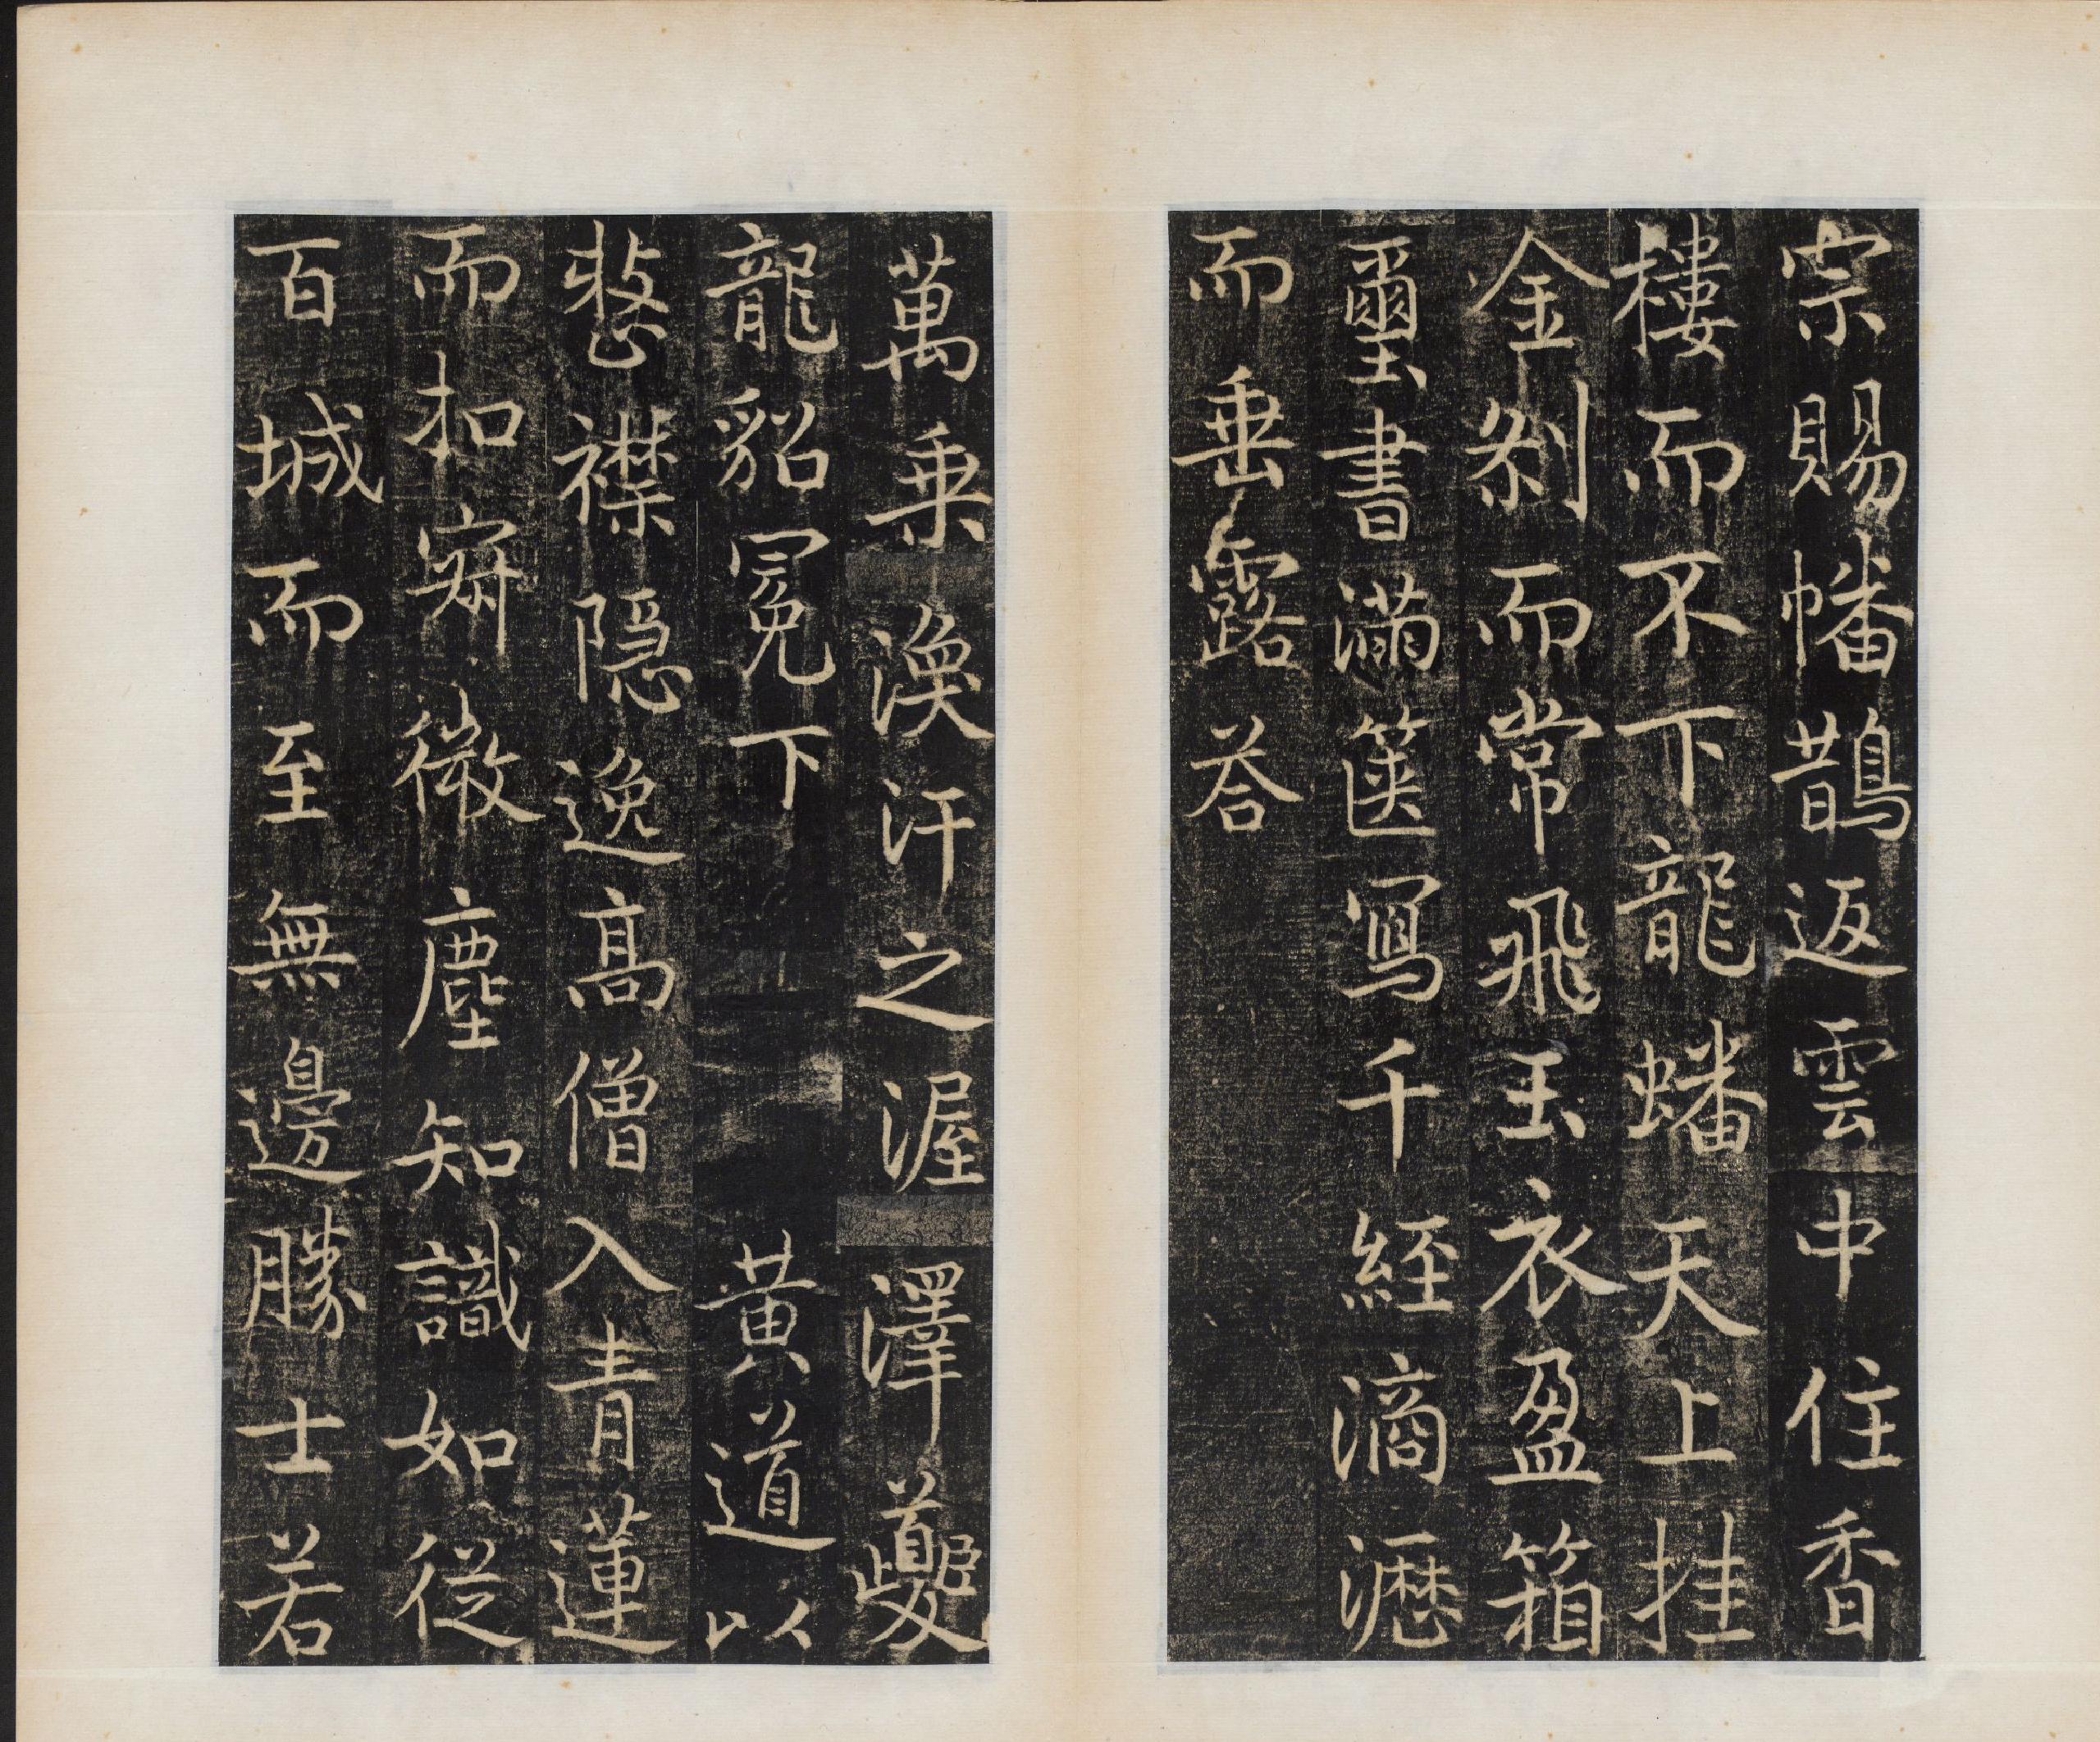 宗賜幡鵲返雲中住香
樓而不下龍蟠天上挂
金剎而常飛玉衣盈箱
璽書滿篋寫千經滴瀝
而垂露答
萬乘渙汗之渥澤夔
龍貂冕下黃道以
整襟隱逸高僧入青蓮
而扣寂微塵知識如從
百城而至無邊勝士若